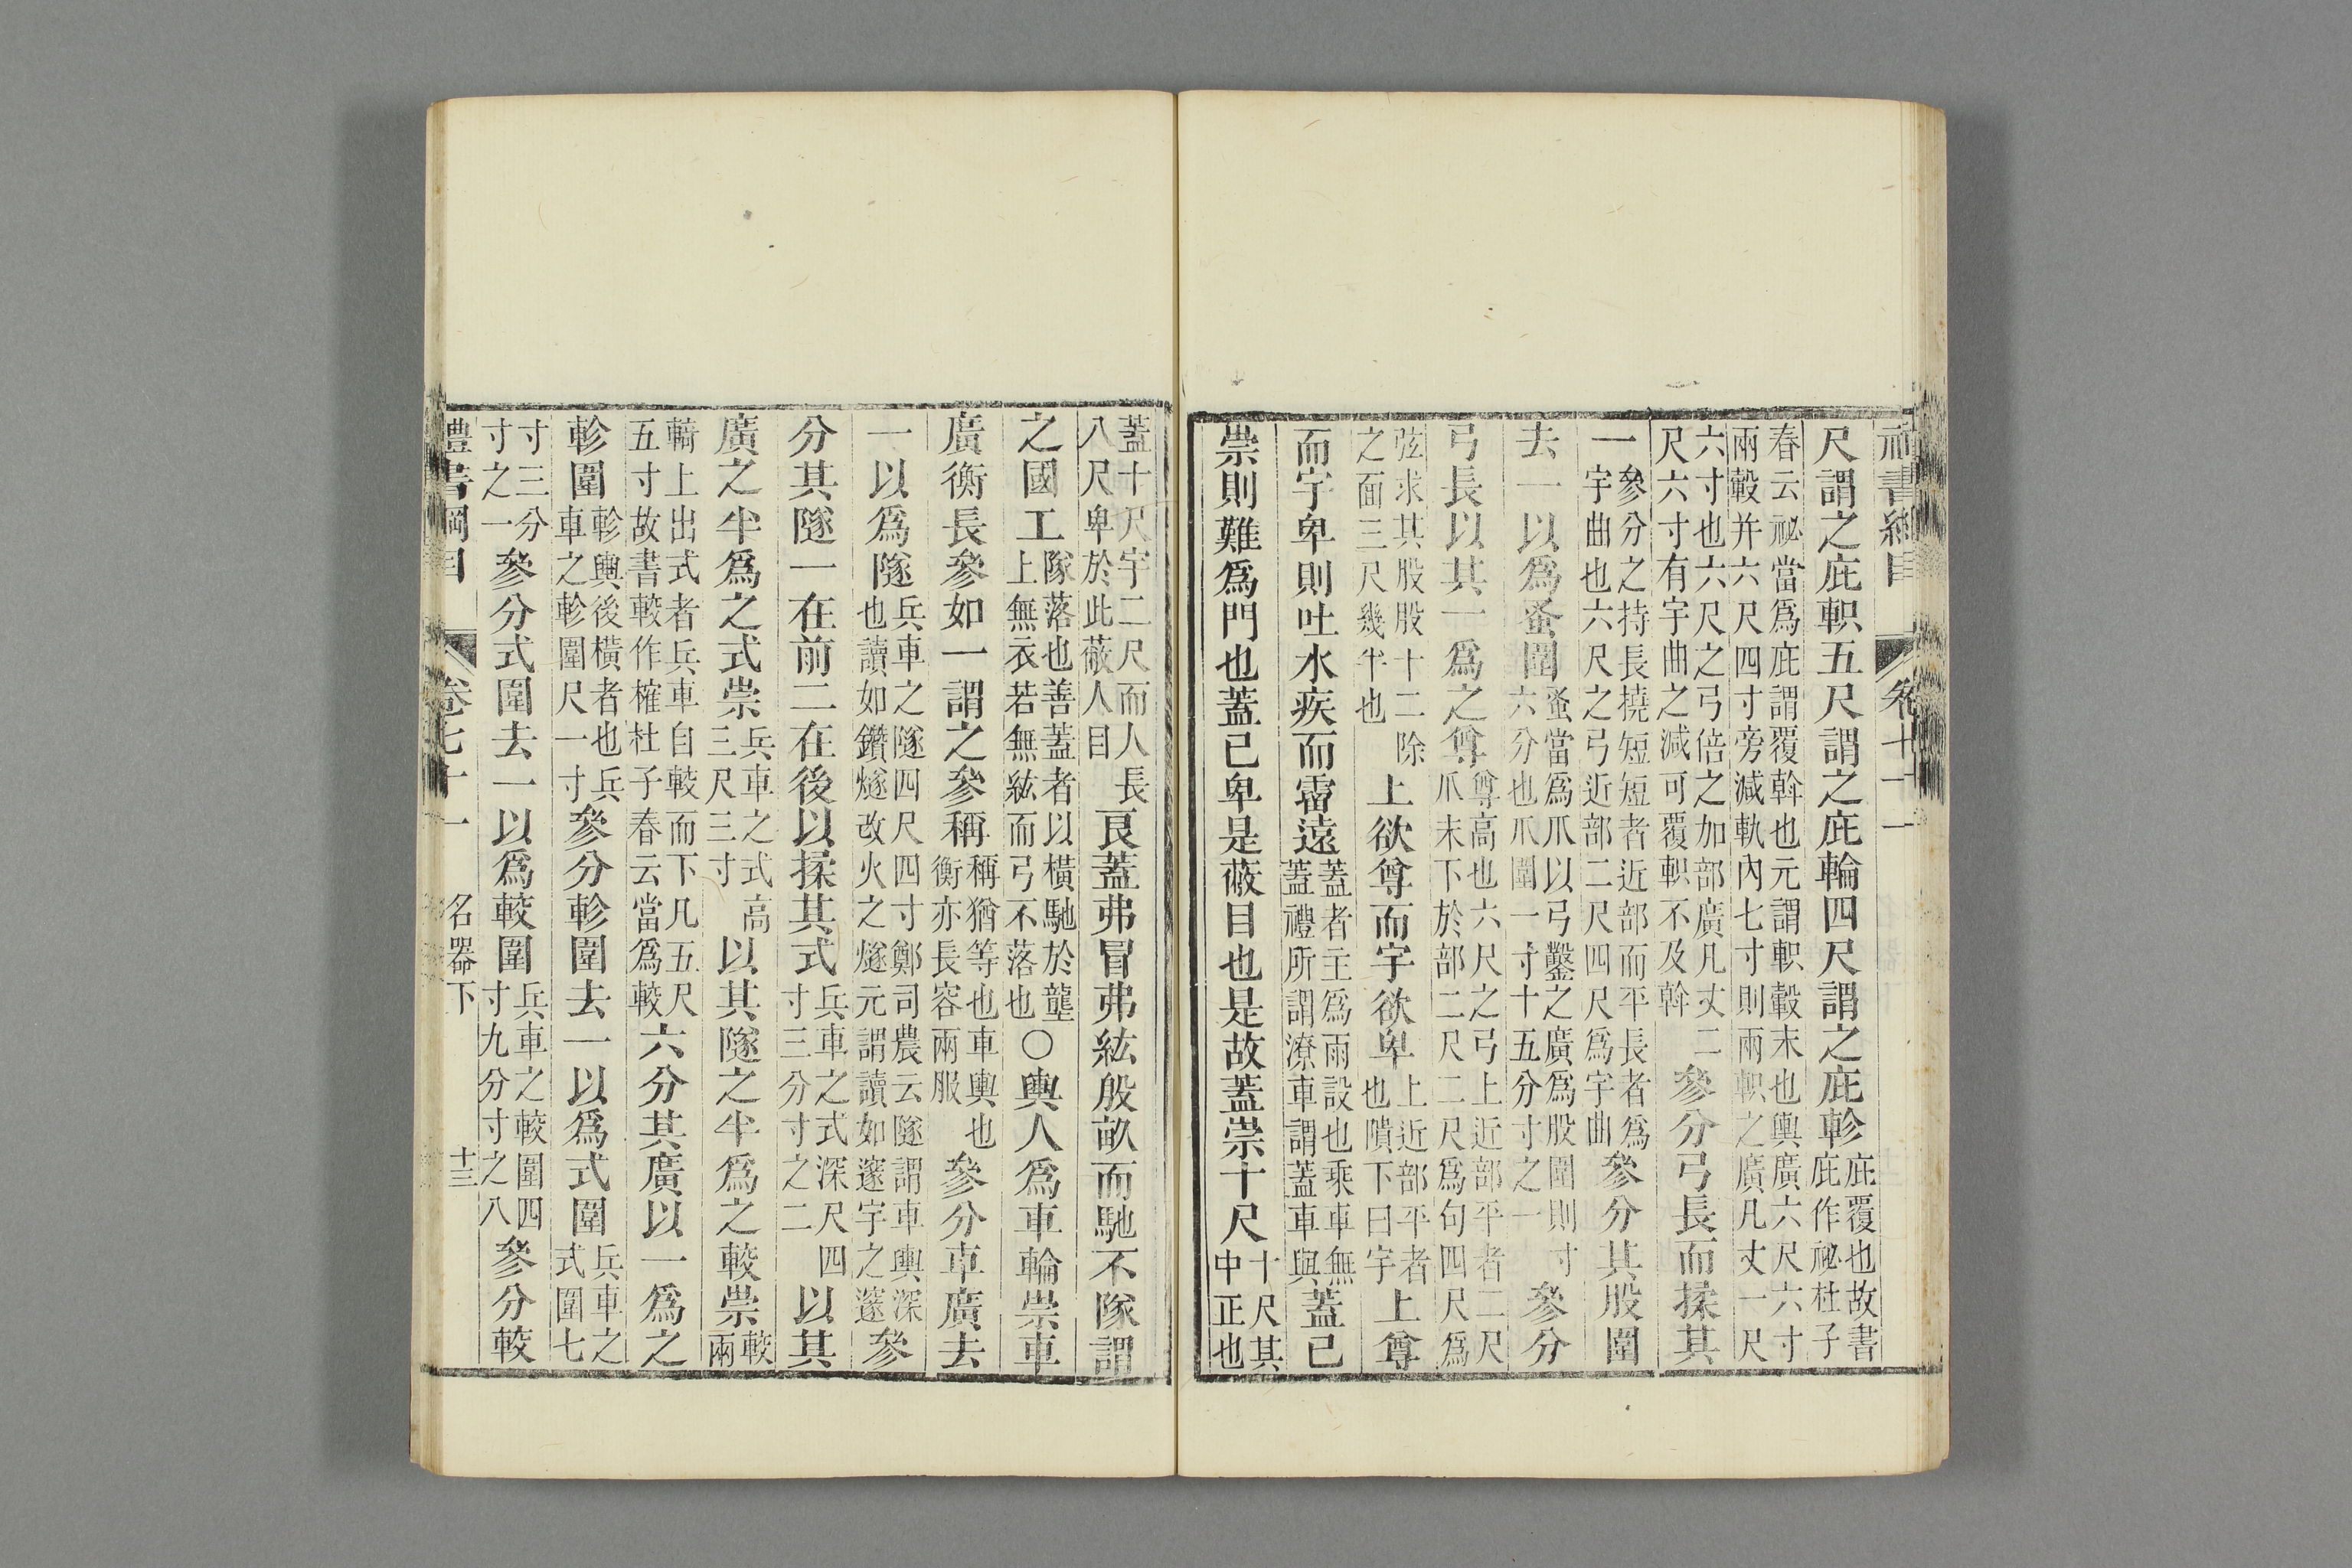 尺謂之庇軹五尺謂之庇輪四尺謂之庇軫庇覆也故書庇作祕杜子
春云祕當爲庇謂覆斡也元謂軹轂末也輿廣六尺六寸兩轂并六尺四寸旁減軌內七寸則兩軹之廣凡丈一尺
六寸也六尺之弓倍之加部廣凡丈二尺六寸有宇曲之減可覆軹不及斡參分弓長而揉其
一參分之持長撓短短者近部而平長者爲宇曲也六尺之弓近部二尺四尺爲宇曲參分其股圍
去一以爲蚤圍蚤當爲爪以弓鑿之廣爲股圍則寸六分也爪圍一寸十五分寸之一參分
弓長以其一爲之尊尊高也六尺之弓上近部平者二尺爪末下於部二尺二尺爲句四尺爲
弦求其股股十二除之面三尺幾半也上欲尊而宇欲卑上近部平者也隤下曰宇上尊
而宇卑則吐水疾而霤遠蓋者主爲雨設也乘車無蓋禮所謂潦車謂蓋車與蓋已
崇則難爲門也蓋已卑是蔽目也是故蓋崇十尺十尺其中正也
蓋十尺宇二尺而人長八尺卑於此蔽人目良蓋弗冒弗紘殷畝而馳不隊謂
之國工隊落也善蓋者以橫馳於壟上無衣若無紘而弓不落也○輿人爲車輪崇車
廣衡長參如一謂之參稱稱猶等也車輿也衡亦長容兩服參分車廣去
一以爲隧兵車之隧四尺四寸鄭司農云隧謂車輿深也讀如鑽燧改火之燧元謂讀如邃宇之邃參
分其隧一在前二在後以揉其式兵車之式深尺四寸三分寸之二以其
廣之半爲之式崇兵車之式高三尺三寸以其隧之半爲之較崇較兩
輢上出式者兵車自較而下凡五尺五寸故書較作榷杜子春云當爲較六分其廣以一爲之
軫圍軫輿後橫者也兵車之軫圍尺一寸參分軫圍去一以爲式圍兵車之式圍七
寸三分寸之一參分式圍去一以爲較圍兵車之較圍四寸九分寸之八參分較
禮書綱目 卷七十一 名器下 十三